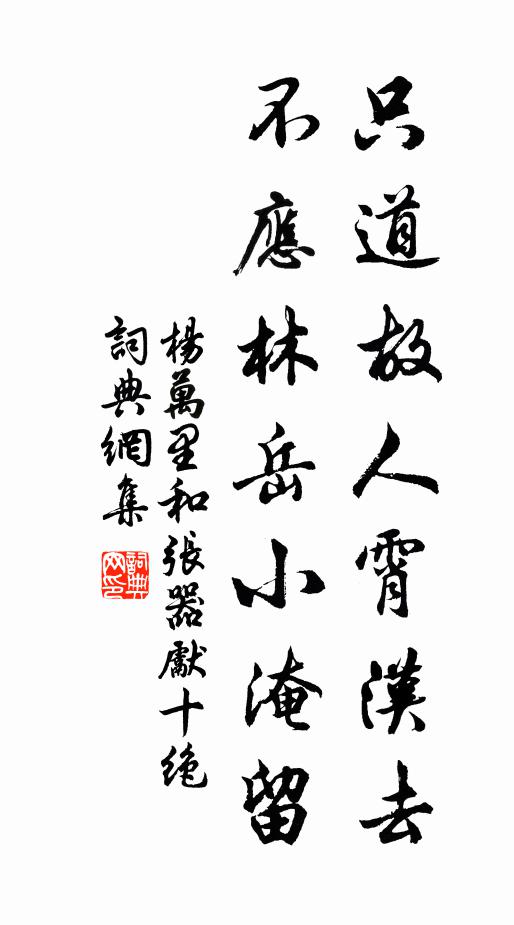 只道故人霄漢去
不應林岳小淹留
楊萬里和張器獻十絕
詞典網集
詞典
网印